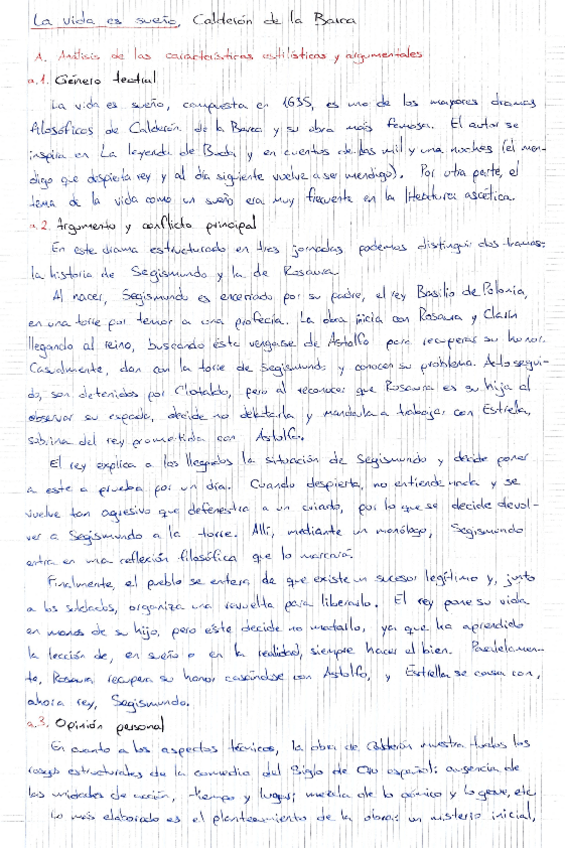 La vida es sueño, Calderón de la Barca
A. Análisis de las características estilísticas y argumentales
a.1. Género teatral
La vida es sueño, compuesta en 1635, es uno de los mayores dramas
filosóficos de Calderón de la Barca y su obra más famosa. El autor se
inspira en La leyenda de Buda y en cuentos de Las mil y una noches (el men-
digo que despierta rey y al día siguiente vuelve a ser mendigo). Por otra parte, el
tema de la vida como un sueño era muy frecuente en la literatura ascética.
a.2. Argumento y conflicto principal
En este drama estructurado en tres jornadas podemos distinguir dos tramas:
la historia de Segismundo y la de Rosaura.
Al nacer, Segismundo es encerrado por su padre, el rey Basilio de Polonia,
en una torre por temor a una profecía. La obra inicia con Rosaura y Clarín
llegando al reino, buscando ésta vengarse de Astolfo para recuperar su honor.
Casualmente, dan con la torre de Segismundo y conocen su problema. Acto segui-
do, son detenidos por Clotaldo, pero al reconocer que Rosaura es su hija al
observar su espada, decide no delatarla y mandarla a trabajar con Estrella,
sobrina del rey prometida con Astolfo.
El rey explica a los llegados la situación de Segismundo y decide poner
a este a prueba por un día. Cuando despierta, no entiende nada y se
vuelve tan agresivo que defenestra a un criado, por lo que se decide devol-
ver a Segismundo a la torre. Allí, mediante un monólogo, Segismundo
entra en una reflexión filosófica que lo marcará.
Finalmente, el pueblo se entera de que existe un sucesor legítimo y, junto
a los soldados, organiza una revuelta para liberarlo. El rey pone su vida
en manos de su hijo, pero éste decide no matarlo, ya que ha aprendido
la lección de, en sueño o en la realidad, siempre hacer el bien. Paralelamen-
te, Rosaura recupera su honor casándose con Astolfo, y Estrella se casa con,
ahora rey, Segismundo.
a.3. Opinión personal
En cuanto a los aspectos técnicos, la obra de Calderón muestra todos los
rasgos estructurales de la comedia del Siglo de Oro español: ausencia de
las unidades de acción, tiempo y lugar; mezcla de lo cómico y lo grave, etc.
Lo más elaborado es el planteamiento de la obra: un misterio inicial,